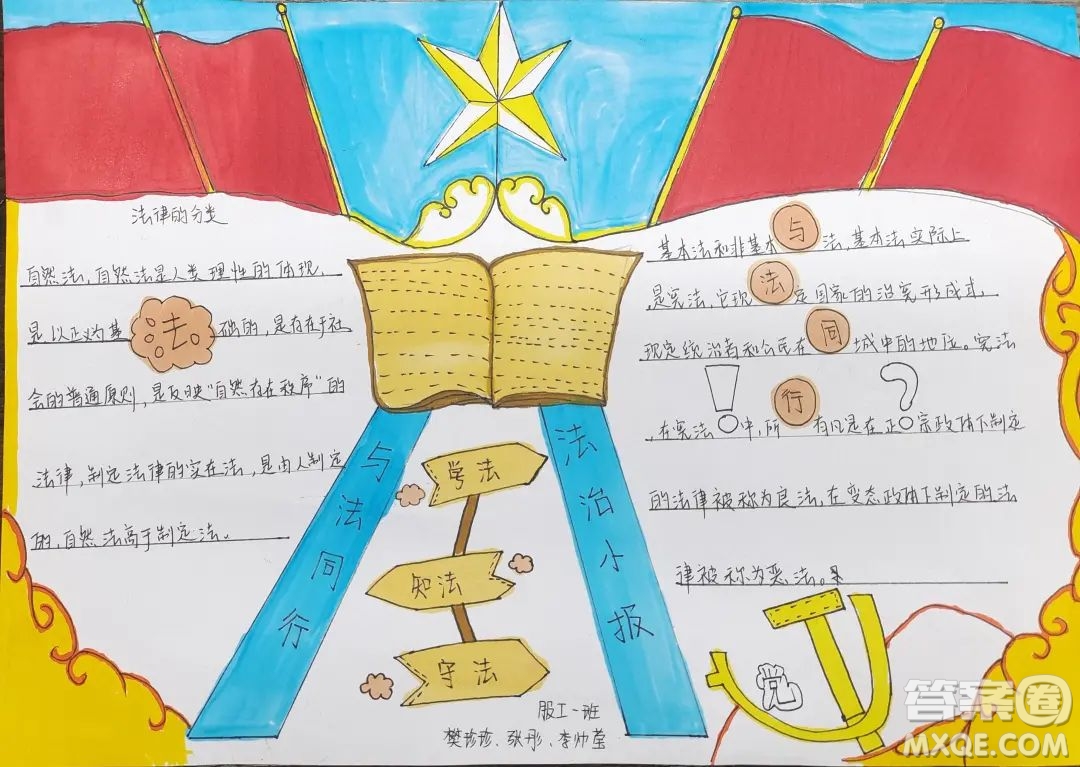 法律的分类
自然法,自然法是人类理性的体现,
是以正义为基础的,是存在于社
会的普通原则,是反映"自然存在秩序"的
法律,制定法律的实在法,是由人制定
的,自然法高于制定法。
法
与法同行
学法
知法
守法
法治小报
服工一班
樊珍珍、张彤、李帅莹
基本法和非基本法,基本法实际上
是宪法,它规定国家的治宪形成式,
现定统治者和公民在城中的地位。宪法
在宪法中,所有凡是在正宗政体下制定
的法律被称为良法,在变态政体下制定的法
律被称为恶法。
与
法
同
行
!
?
党
答案圈
MXQE.COM